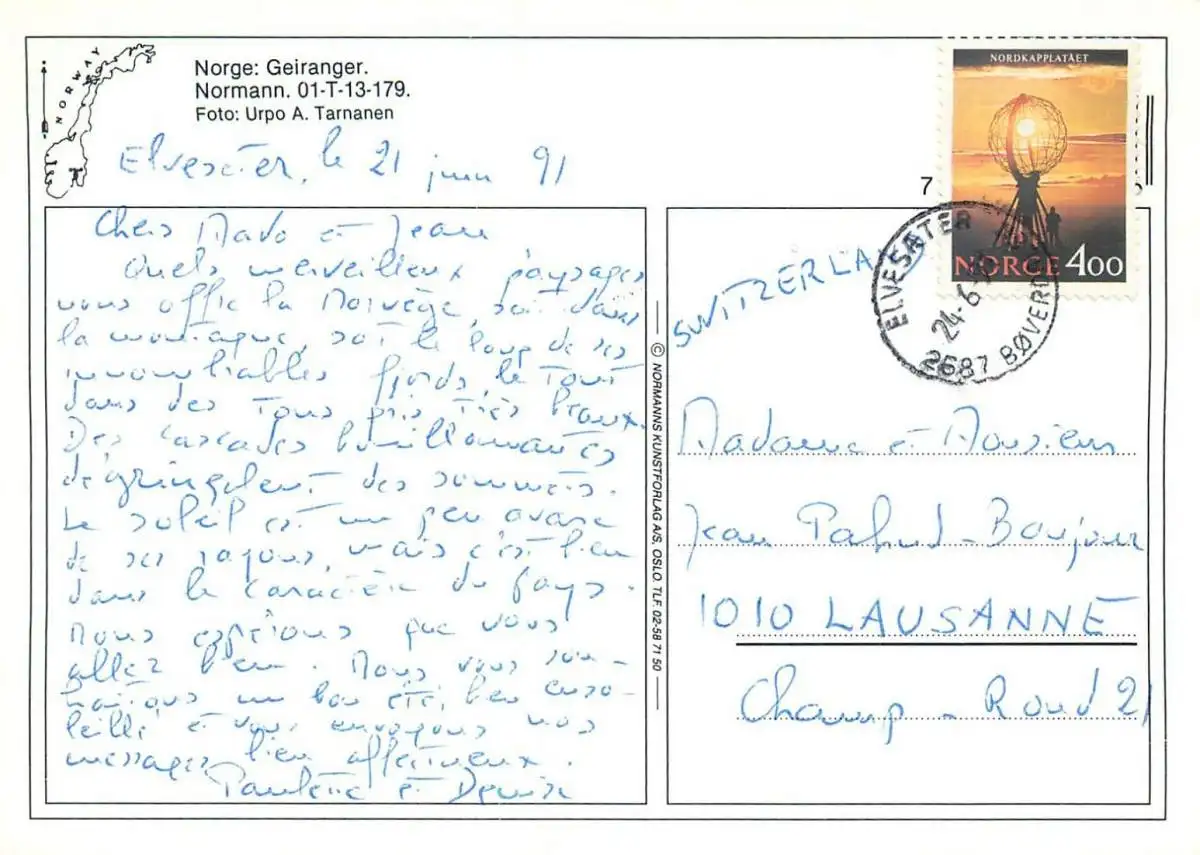 NORWAY
Norge: Geiranger.
Normann. 01-T-13-179.
Foto: Urpo A. Tarnanen
Elvesæter, le 21 juin 91
Chers Mado et Jean,
Quels merveilleux paysages
vous offre la Norvège, soit dans
la montagne, soit le long de ses
innombrables fjords, le tout
dans des tons gris très beaux.
Des cascades bouillonnantes
dégringolent des sommets.
Le soleil est un peu avare
de ses rayons, mais c'est bien
dans le caractère du pays.
Nous espérons que vous
allez bien. Nous vous sou-
haitons un bon été, bien enso-
leillé et vous envoyons nos
messages bien affectueux.
Paulette et Denise
© NORMANNS KUNSTFORLAG A/S, OSLO. TLF. 02-58 71 50
NORDKAPPLATÅET
NORGE 400
7
ELVESÆTER
24-6
2687 BØVERD
SWITZERLA
Madame et Monsieur
Jean Pahud-Bonjour
1010 LAUSANNE
Champ-Rond 21